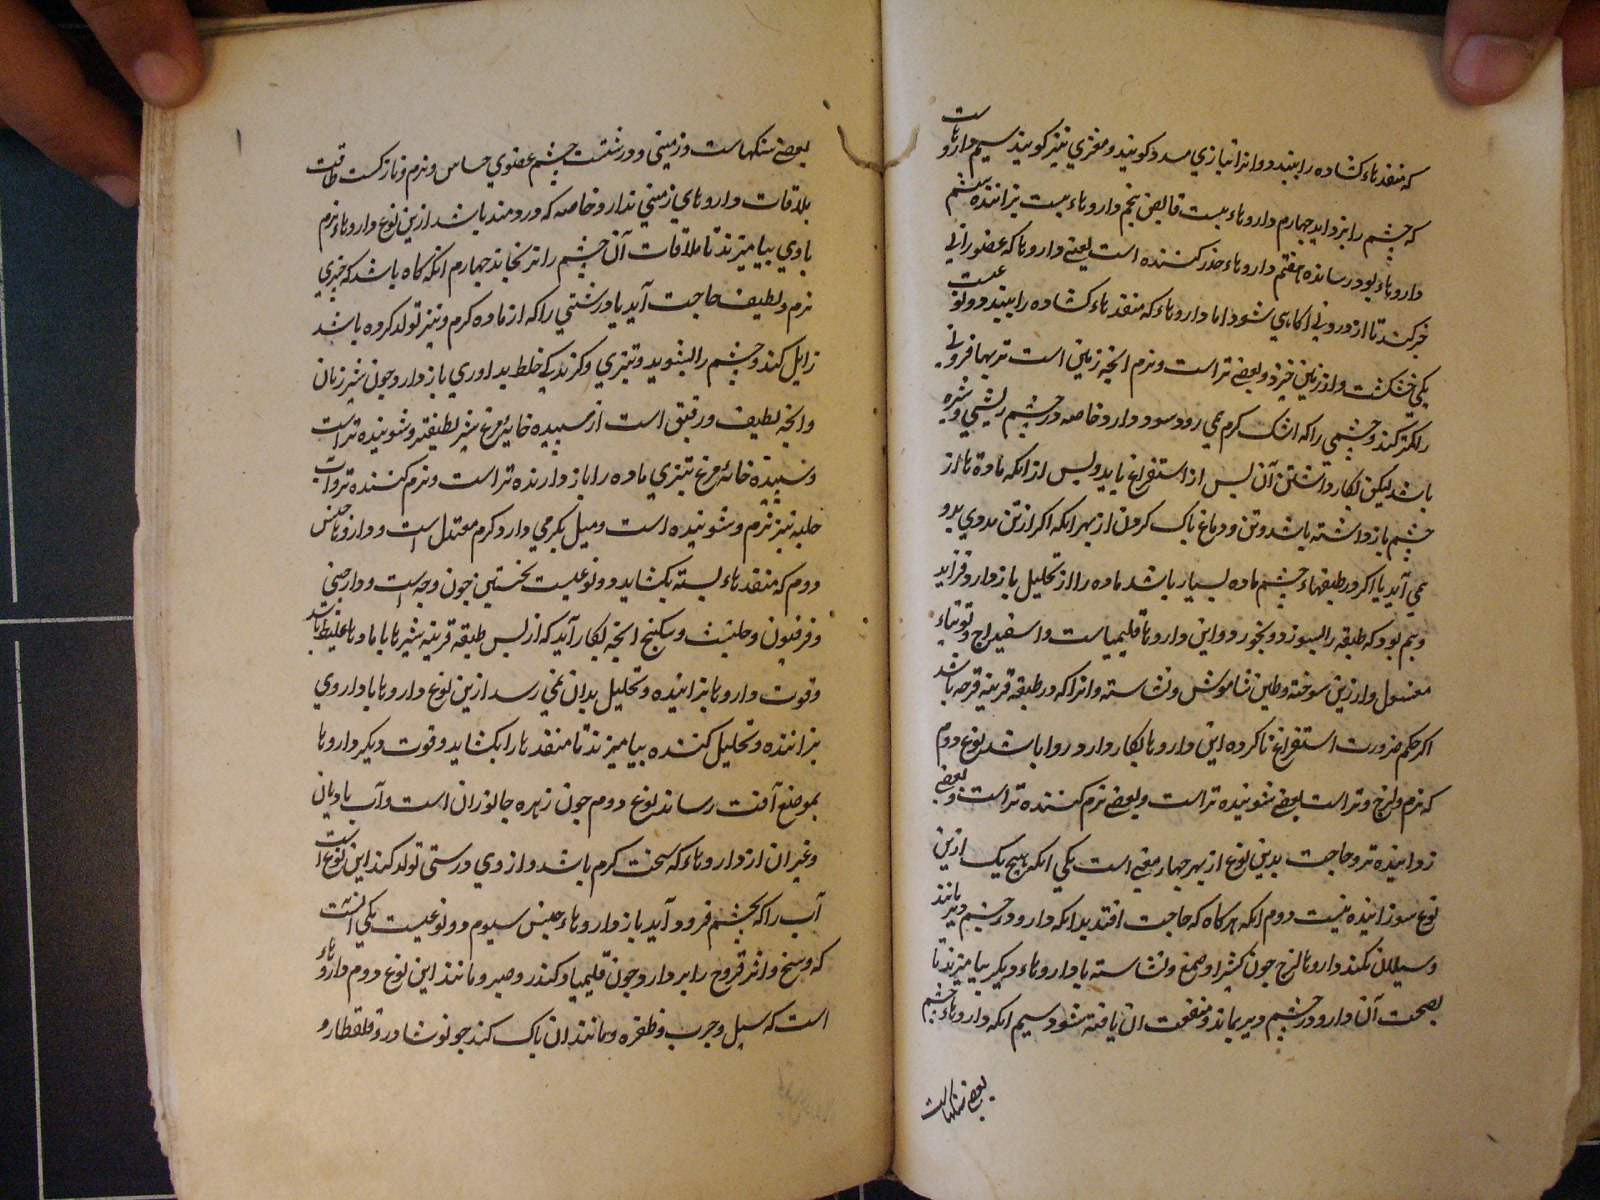 که منفذهاء کشاده را ببندد و انرا بتازی مسدد کویند و مغری نیز کویند سیم داروهاست
که چشم را بزداید چهارم داروهاء‌یست قابض پنجم داروهاء‌یست پزاننده ششم
داروهاء بود رساننده هفتم داروهاء خدر کننده است یعنے داروها که عضو را بی
خبر کند تا از درد بی اکاهی شود اما داروهاء که منفذهاء کشاده را ببندد دو نوعست
یکی خشکست و از زمین خیزد و بعضے تر است و نرم انچه زمین است تریها فرونی
را کمتر کند و چشمی را که اشک کرم می رود سود دارد خاصه در چشم ریشی و بثره
باشد لیکن بکار داشتن آن پس از استفراغ باید و پس از انکه ماده تا از
چشم باز داشته باشد و تن و دماغ پاک کردن از بهر انکه اکر از تن مددی بدو
می آید یا اکر در طبقهاء چشم ماده بسیار باشد ماده را از تحلیل باز دارد و فزاید
و بیم بود که طبقه را بسوزد و بخورد و این داروها قلیمیاست و اسفیداج و توتیاء
مغسول و ارزیز سوخته و طین شاموش و نشاسته و انرا که در طبقه قرنیه قرحه باشد
اکر حکم ضرورت استفراغ ناکرده این داروها بکار دارد روا باشد نوع دوم
که نرم و لزج و تر است بعضے شوینده تر است و بعضے نرم کننده تر است و بعضے
زداینده تر و حاجت بدین نوع از بهر چهار معنے است یکی انکه هیچ یک ازین
نوع سوزاننده نیست دوم انکه هرکاه که حاجت افتد بدانکه دارو در چشم دیر بماند
و سیلان نکند داروها لزج چون کثیرا و صمغ و نشاسته با داروهاء دیکر بیامیزند تا
بصحبت آن دارو در چشم دیر بماند و منفعت ان یافته شود سیم انکه داروهاء چشم
بعضے سنکهاست
بعضے سنکهاست و زمینی و درشتست چشم عضوی حساس و نرم و نازکست طاقت
ملاقات داروهای زمینی ندارد خاصه که دردمند باشد ازین نوع داروهاء نرم
با وی بیامیزند تا ملاقات آن چشم را نرنجاند چهارم انکه کاه باشد که چیزی
نرم و لطیف حاجت آید یا درشتی را که از ماده کرم و تیز تولد کرده باشد
زایل کند و چشم را بشوید و تیزی و کزندکی خلط بد اوری باز دارد چون شیر زنان
و انچه لطیف و رقیق است از سپیده خایه مرغ شیر لطیفتر و شوینده تر است
و سپیده خایه مرغ تیزی ماده را باز دارنده تر است و نرم کننده تر و آب
حلبه نیز نرم و شوینده است و میل بکرمی دارد کرم معتدل است و داروها جنس
دوم که منفذهاء بسته بکشاید دو نوعیست نخستین چون وج است و دارچینی
و فرفیون و حلتیت و سکبینج انچه بکار آید که از پس طبقه قرنیه شیرها یا مادها غلیظ باشد
و قوت داروها پزاننده و تحلیل بدان نمی رسد ازین نوع داروها با داروی
پزاننده و تحلیل کننده بیامیزند تا منفذها را بکشاید و قوت دیکر داروها
بموضع آفت رساند نوع دوم چون زهره جانوران است و آب بادیان
و غیر ان از داروهاء که سخت کرم باشد و از وی درستی تولد کند این نوع است
آب را که بچشم فرود آید باز دارد داروهاء جنس سیوم دو نوعیست یکی انست
که وسخ و اثر قروح را بردارد چون قلیمیا و کندر و صبر و مانند این نوع دوم داروهاء
است که سبل و جرب و ظفره و مانند ان پاک کند چو نوشادر و قلقطار و